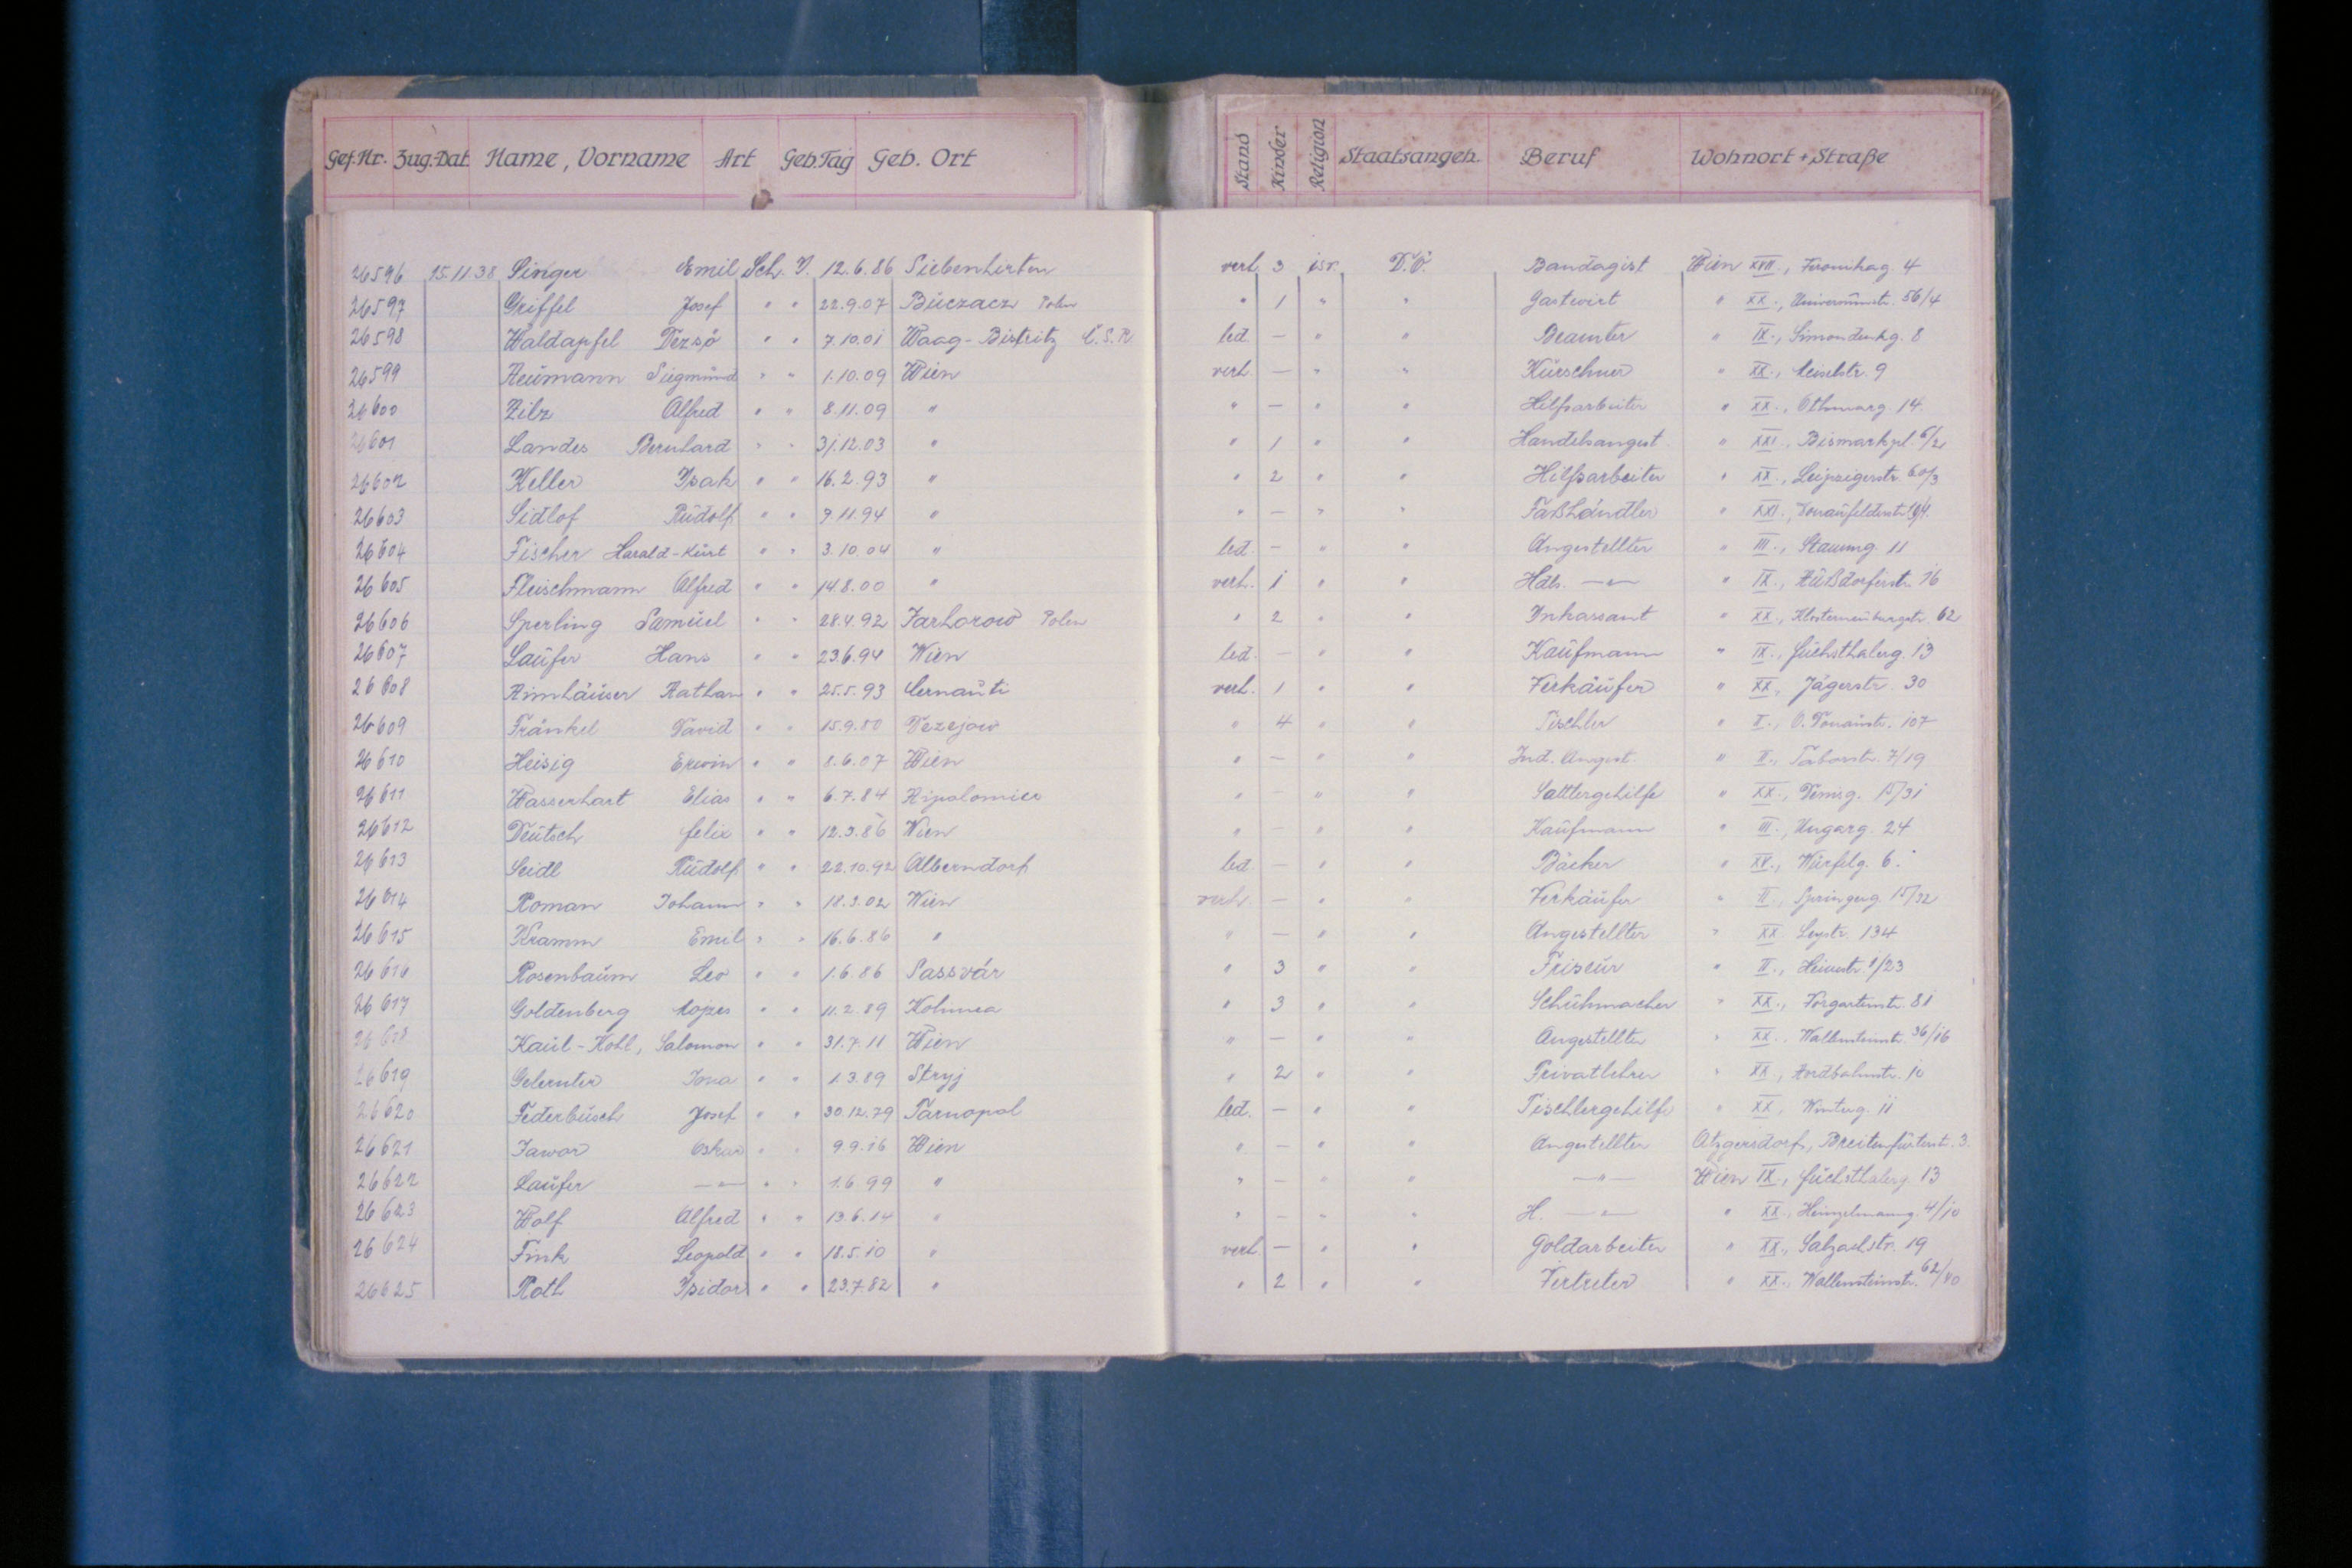 Gef.Nr. Zug.-Dat. Name, Vorname Art Geb.Tag Geb. Ort Stand Kinder Religion Staatsangeh. Beruf Wohnort + Straße
26596 15.11.38 Singer Emil Sch. J. 12.6.86 Siebenhirten verh. 3 isr. D.Ö. Bandagist Wien XVII., 4
26597 Griffel Josef " " 22.9.07 Buczacz Polen " 1 " " Gastwirt " XX., 56/4
26598 Waldapfel Dezsö " " 7.10.01 Waag-Bistritz Č.S.R led. — " " Beamter " IX., Simondenkg. 8
26599 Neumann Siegmund " " 1.10.09 Wien verh. — " " Kürschner " XX., 9
26600 Zilz Alfred " " 8.11.09 " " — " " Hilfsarbeiter " XX., Othmarg. 14.
26601 Landes Bernhard " " 31.12.03 " " 1 " " Handelsangest. " XXI., Bismarkpl.
26602 Keller Isak " " 16.2.93 " " 2 " " Hilfsarbeiter " XX., Leipzigerstr. 60/3
26603 Sidlof Rudolf " " 9.11.94 " " — " " Faßhändler " XXI., Donaufelderstr.
26604 Fischer Harald-Kurt " " 3.10.04 " led. — " " Angestellter " III., 11
26605 Fleischmann Alfred " " 14.8.00 " verh. 1 " " Hdls. —"— " IX., Nußdorferstr. 16
26606 Sperling Samuel " " 28.4.92 Jarhorow Polen " 2 " " Inkassant " XX., Klosterneuburgstr. 62
26607 Laufer Hans " " 23.6.94 Wien led. — " " Kaufmann " IX., Fuchsthalerg. 13
26608 Nimhäuser Nathan " " 25.5.93 Cernauti verh. 1 " " Verkäufer " XX., Jägerstr. 30
26609 Fränkel David " " 15.9.80 " 4 " " Tischler " II., O. Donaustr. 107
26610 Heisig Erwin " " 8.6.07 Wien " — " " Ind. Angest. " II., Taborstr. 7/19
26611 Wasserhart Elias " " 6.7.84 " — " " Sattlergehilfe " XX., Denisg. 15/31
26612 Deutsch Felix " " 12.3.86 Wien " — " " Kaufmann " III., Ungarg. 24
26613 Seidl Rudolf " " 22.10.92 Alberndorf led. — " " Bäcker " XV., Würfelg. 6.
26614 Roman Johann " " 18.3.02 Wien verh. — " " Verkäufer " II., Springerg. 15/32
26615 Kramm Emil " " 16.6.86 " " — " " Angestellter " XX. Leystr. 134
26616 Rosenbaum Leo " " 1.6.86 Sassvár " 3 " " Friseur " II., Heinestr. 1/23
26617 Goldenberg Mojzes " " 11.2.89 Kolomea " 3 " " Schuhmacher " XX., Vorgartenstr. 81
26618 Kaul-Kohl, Salomon " " 31.7.11 Wien " — " " Angestellter " XX., Wallensteinstr. 36/16
26619 Gelernter Jona " " 1.3.89 Stryj " 2 " " Privatlehrer " XX., Nordbahnstr. 10
26620 Federbusch Josef " " 30.12.79 Tarnopol led. — " " Tischlergehilfe " XX., Winterg. 11
26621 Jawor Oskar " " 9.9.16 Wien " — " " Angestellter Atzgersdorf, Breitenfurterst. 3.
26622 Laufer —"— " " 1.6.99 " " — " " —"— Wien IX., Fuchsthalerg. 13
26623 Wolf Alfred " " 13.6.14 " " — " " H. —"— " XX., Heinzelmanng. 4/10
26624 Fink Leopold " " 18.5.10 " verh. — " " Goldarbeiter " XX., Salzachstr. 19
26625 Roth Isidor " " 23.7.82 " " 2 " " Vertreter " XX., Wallensteinstr.